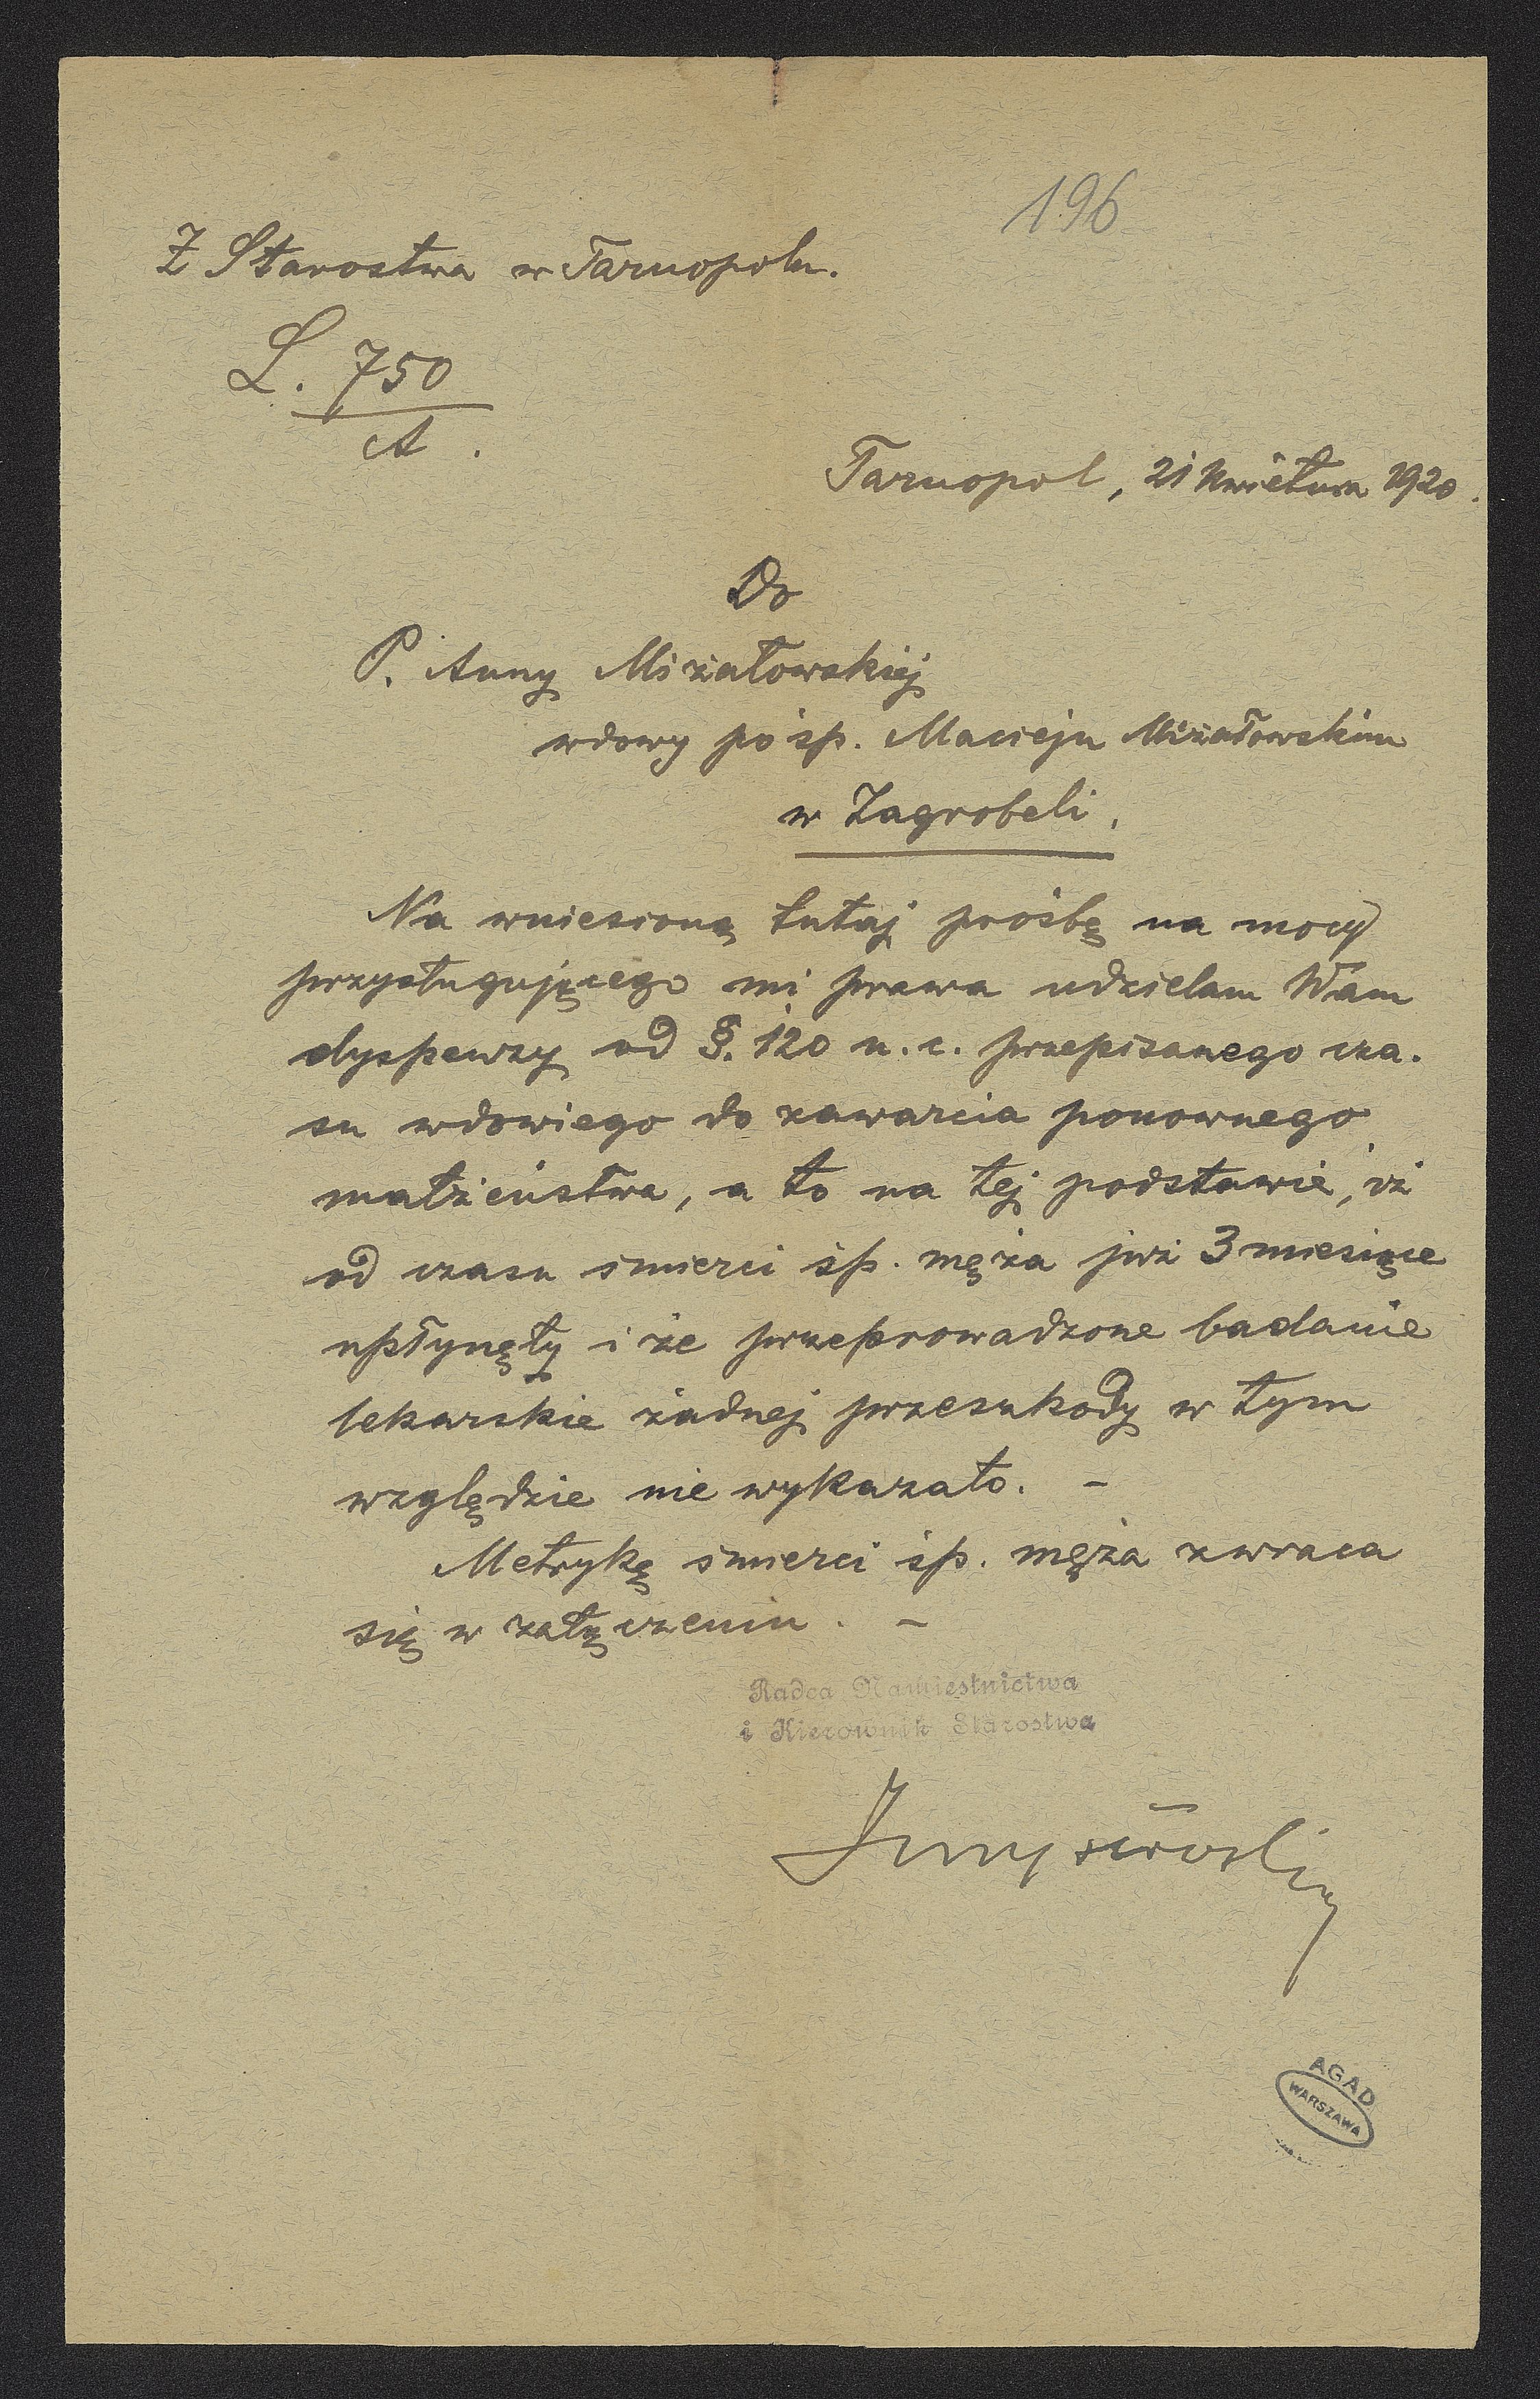 196
Z Starostwa w Tarnopolu.
L. 750
A.
Tarnopol, 21 kwietnia 1920.
Do
P. Anny Miżałowskiej
wdowy po śp. Macieju Miżałowskim
w Zagrobeli.
Na wniesioną tutaj prośbę na mocy
przysługującego mi prawa udzielam Wam
dyspenzy od §. 120 u. c. przepisanego cza-
su wdowiego do zawarcia ponownego
małżeństwa, a to na tej podstawie, iż
od czasu śmierci śp. męża już 3 miesiące
upłynęły i że przeprowadzone badanie
lekarskie żadnej przeszkody w tym
względzie nie wykazało. –
Metrykę śmierci śp. męża zwraca
się w załączeniu. –
Radca Namiestnictwa
i Kierownik Starostwa
AGAD
WARSZAWA